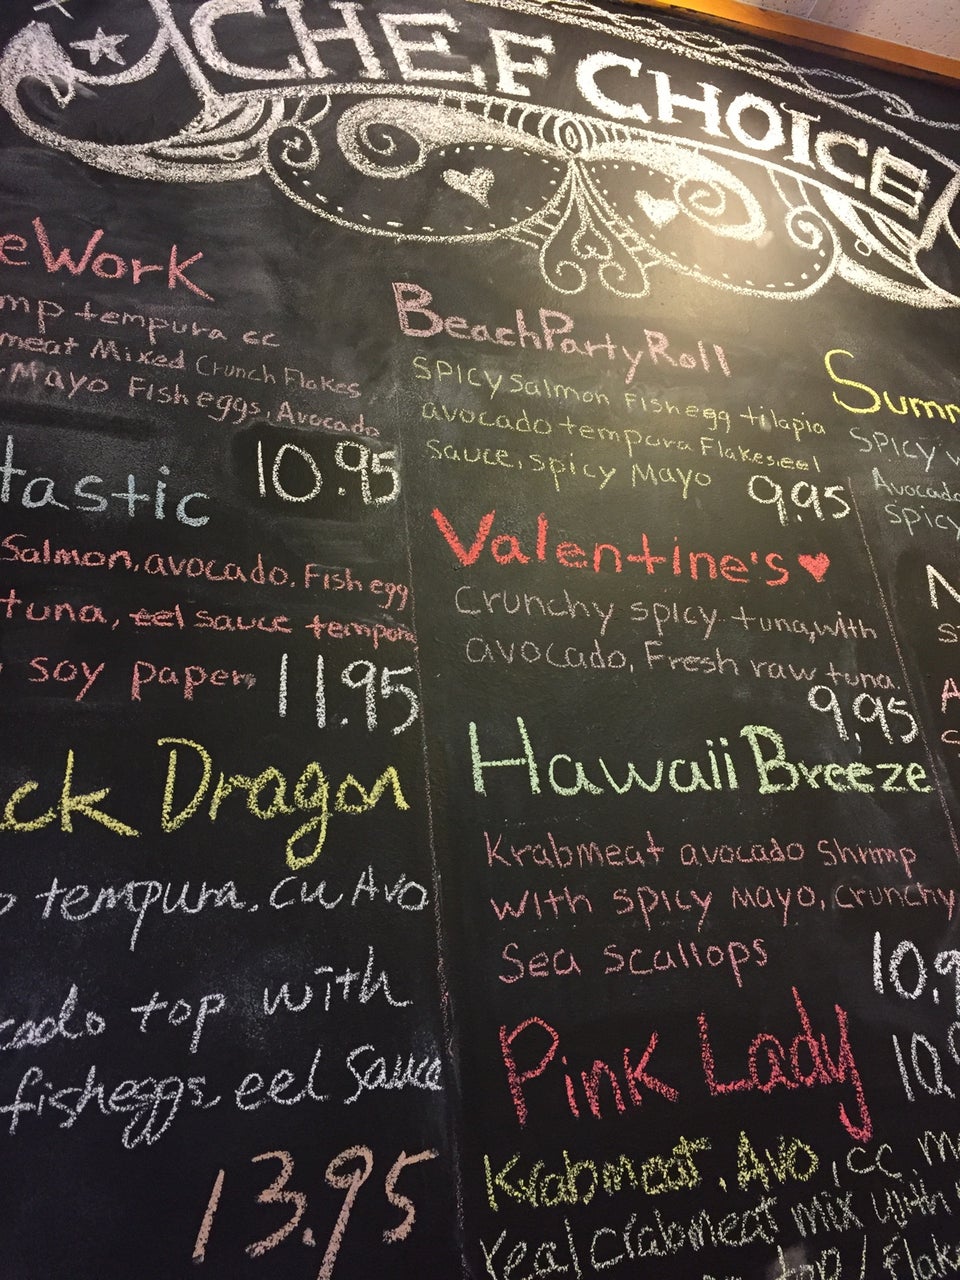 CHEF CHOICE
eWork
mp tempura cc
meat Mixed Crunch Flakes
Mayo Fish eggs, Avocado
10.95
tastic
Salmon, avocado. Fish egg
tuna, eel sauce tempura
soy paper,
11.95
ck Dragon
tempura. cu Avo
cado top with
fisheggs, eel Sauce
13.95
BeachParty Roll
Spicy Salmon Fishegg tilapia
avocado tempura Flakes,eel
Sauce, spicy Mayo
9.95
Valentine's ♥
Crunchy spicy tuna,with
avocado, Fresh raw tuna.
9.95
Hawaii Breeze
Krabmeat avocado Shrimp
with spicy Mayo, crunchy
Sea scallops
10.9
Pink Lady 10.
Krabmeat. Avo, cc m
real crabmeat mix with
top / flake
Summ
Spicy w
Avocado
Spicy